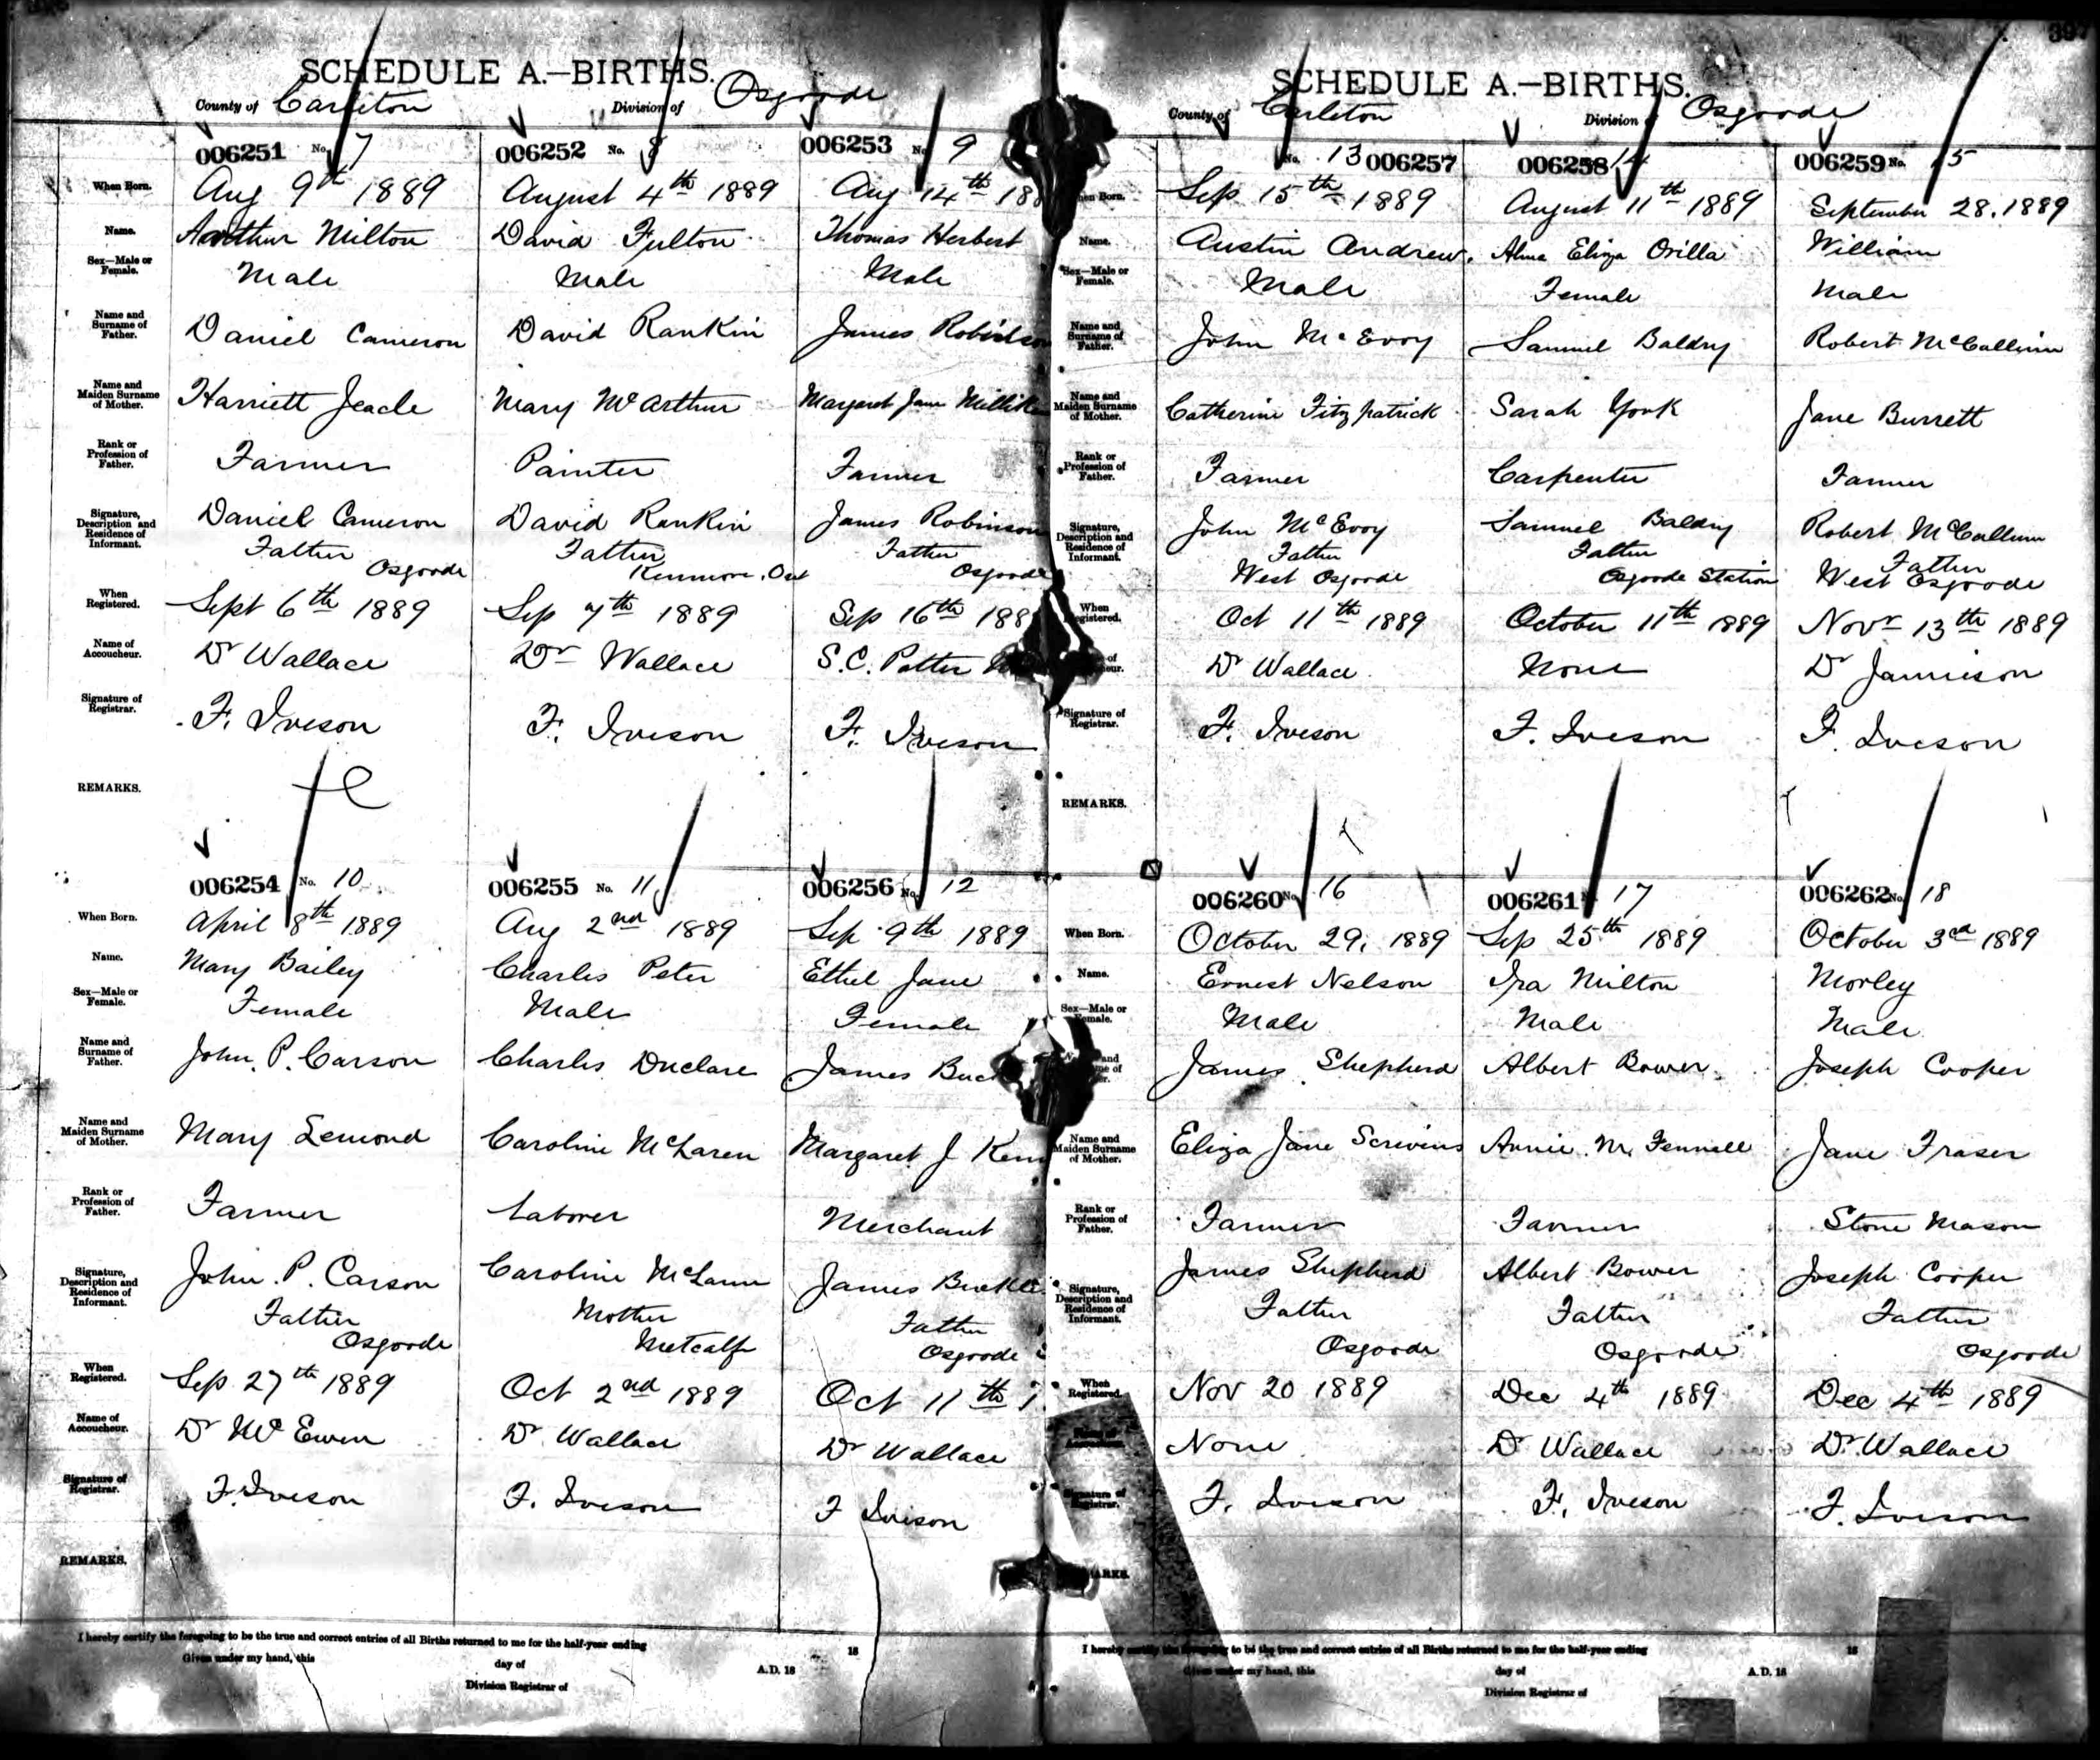 SCHEDULE A.—BIRTHS.
County of Carleton Division of Osgoode
006251 No. 7
When Born. Aug 9th 1889
Name. Arthur Milton
Sex—Male or Female. Male
Name and Surname of Father. Daniel Cameron
Name and Maiden Surname of Mother. Harriett Jeacle
Rank or Profession of Father. Farmer
Signature, Description and Residence of Informant. Daniel Cameron
Father
Osgoode
When Registered. Sept 6th 1889
Name of Accoucheur. Dr Wallace
Signature of Registrar. F. Iveson
REMARKS.
006252 No. 8
August 4th 1889
David Fulton
Male
David Rankin
Mary McArthur
Painter
David Rankin
Father
Kenmore, Ont
Sep 7th 1889
Dr Wallace
F. Iveson
006253 No. 9
Aug 14th 18
Thomas Herbert
Male
James Robinson
Margaret Jane
Farmer
James Robinson
Father
Osgoode
Sep 16th 188
S.C. Potter
F. Iveson
006254 No. 10
When Born. April 8th 1889
Name. Mary Bailey
Sex—Male or Female. Female
Name and Surname of Father. John. P. Carson
Name and Maiden Surname of Mother. Mary Lemond
Rank or Profession of Father. Farmer
Signature, Description and Residence of Informant. John. P. Carson
Father
Osgoode
When Registered. Sep 27th 1889
Name of Accoucheur. Dr McEwen
Signature of Registrar. F. Iveson
REMARKS.
006255 No. 11
Aug 2nd 1889
Charles Peter
Male
Charles Duclare
Caroline McLaren
Laborer
Caroline McLaren
Mother
Metcalfe
Oct 2nd 1889
Dr Wallace
F. Iveson
006256 No. 12
Sep 9th 1889
Ethel Jane
Female
James
Margaret J
Merchant
James
Father
Osgoode
Oct 11th
Dr Wallace
F Iveson
I hereby certify the foregoing to be the true and correct entries of all Births returned to me for the half-year ending 18
Given under my hand, this day of A.D. 18
Division Registrar of
SCHEDULE A.—BIRTHS.
County of Carleton Division of Osgoode
No. 13 006257
When Born. Sep 15th 1889
Name. Austin Andrew.
Sex—Male or Female. Male
Name and Surname of Father. John McEvoy
Name and Maiden Surname of Mother. Catherine Fitzpatrick
Rank or Profession of Father. Farmer
Signature, Description and Residence of Informant. John McEvoy
Father
West Osgoode
When Registered. Oct 11th 1889
Dr Wallace
Signature of Registrar. F. Iveson
REMARKS.
006258 14
August 11th 1889
Alma Eliza Orilla
Female
Samuel Baldry
Sarah York
Carpenter
Samuel Baldry
Father
Osgoode Station
October 11th 1889
None
F. Iveson
006259 No. 15
September 28. 1889
William
Male
Robert McCallum
Jane Burrett
Farmer
Robert McCallum
Father
West Osgoode
Novr 13th 1889
Dr Jamieson
F. Iveson
006260 No. 16
When Born. October 29, 1889
Name. Ernest Nelson
Sex—Male or Female. Male
James Shepherd
Name and Maiden Surname of Mother. Eliza Jane Scrivins
Rank or Profession of Father. Farmer
Signature, Description and Residence of Informant. James Shepherd
Father
Osgoode
When Registered. Nov 20 1889
None
Signature of Registrar. F. Iveson
006261 17
Sep 25th 1889
Ira Milton
Male
Albert Bower
Annie. M. Fennell
Farmer
Albert Bower
Father
Osgoode
Dec 4th 1889
Dr Wallace
F. Iveson
006262 No. 18
October 3rd 1889
Morley
Male
Joseph Cooper
Jane Fraser
Stone Mason
Joseph Cooper
Father
Osgoode
Dec 4th 1889
Dr. Wallace
F. Iveson
I hereby certify the foregoing to be the true and correct entries of all Births returned to me for the half-year ending 18
Given under my hand, this day of A.D. 18
Division Registrar of